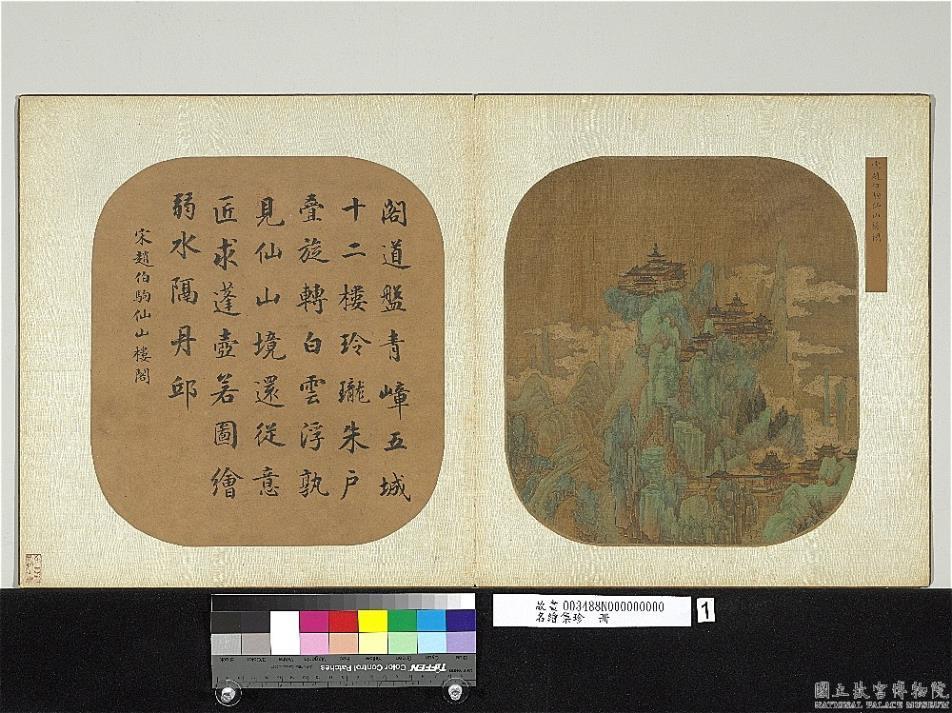 閣道盤青嶂五城
十二樓玲瓏朱戶
疊旋轉白雲浮孰
見仙山境還從意
匠求蓬壺若圖繪
弱水隔丹邱
宋趙伯駒仙山樓閣
宋趙伯駒仙山樓閣
故畫 003488N000000000
名繪集珍 冊
1
TIFFEN Color Control Patches
國立故宮博物院
NATIONAL PALACE MUSEUM